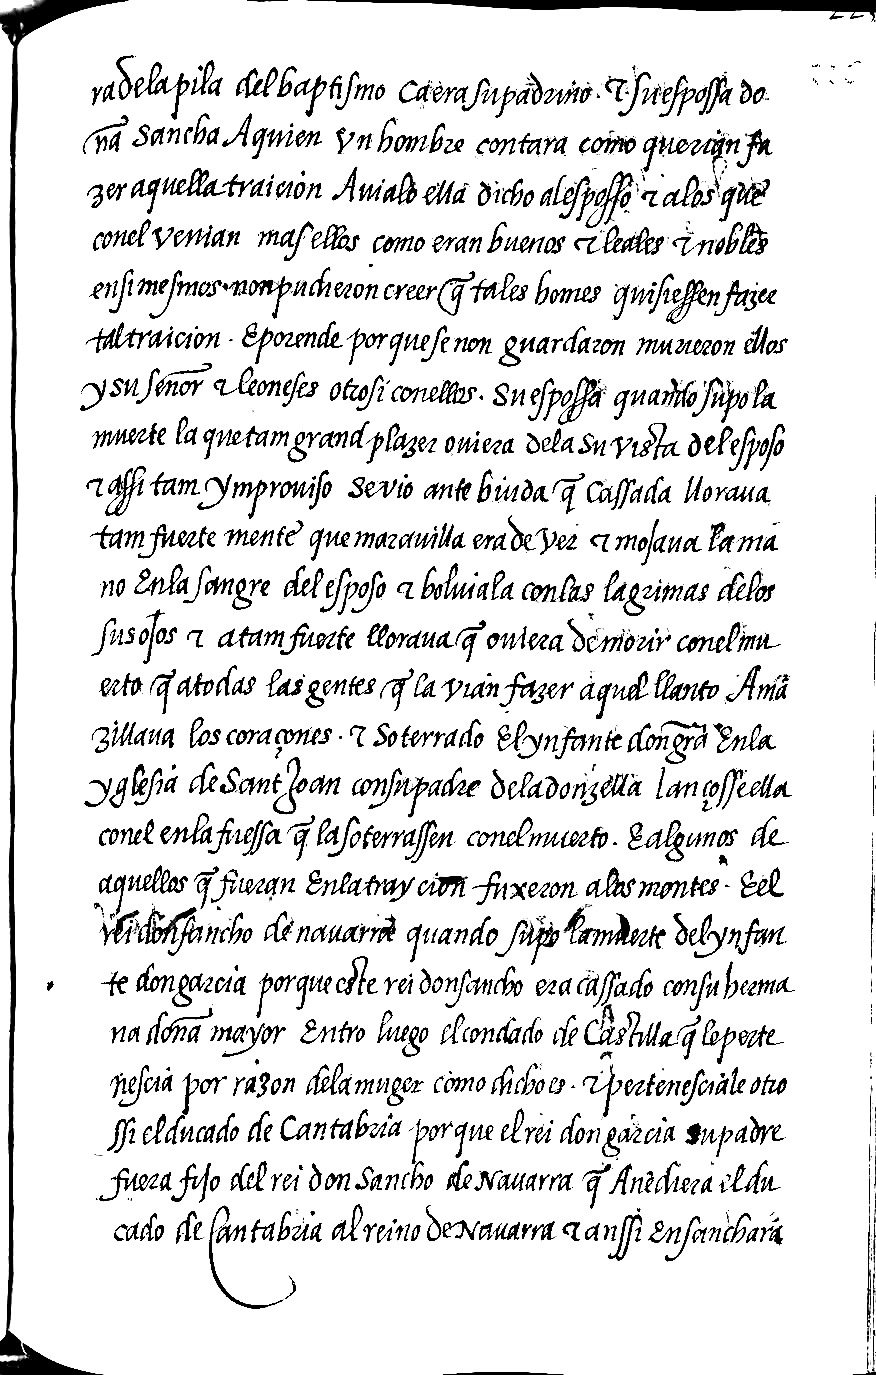 ra de la pila del baptismo Ca era su padrino. τ su espossa do
ña Sancha Aquien vn hombre contara como querian fa
zer aquella traiçión Auialo ella dicho al esposso τ a los que
con el venian mas ellos como eran buenos τ leales τ nobles
en si mesmos non pudieron creer q̃ tales homes quisiessen fazer
tal traicion. E por ende por que se non guardaron murieron ellos
y su señor τ leoneses otrosi con ellos. Su espossa quando supo la
muerte la que tam grand plazer ouiera de la su vista del esposo
τ assi tam ymprouiso se vio ante biuda q̃ Cassada lloraua
tam fuerte mente que marauilla era de ver τ mojaua la ma
no En la sangre del esposo τ boluiala con las lagrimas de los
sus ojos τ atam fuerte lloraua q̃ ouiera de morir con el mu
erto q̃ a todas las gentes q̃ la vian fazer aquel llanto Amã
zillaua los coraçones. τ Soterrado El ynfante don grã̃ En la
yglesia de Sant Joan con su padre de la donzella lançosse ella
con el en la fuessa q̃ la soterrassen con el muerto. E algunos de
aquellos q̃ fueran En la traycion fuxeron a los montes. E el
rei don sancho de nauarra quando supo la muerte del ynfan
te don garcia porque este rei don sancho era cassado con su herma
na doña mayor Entro luego el condado de Castilla q̃ le perte
nescia por razon de la muger como dicho es. τ pertenesciale otro
ssi el ducado de Cantabria por que el rei don garcia su padre
fuera fijo del rei don Sancho de Nauarra q̃ Anediera el du
cado de Cantabria al reino de Nauarra τ anssi Ensanchara